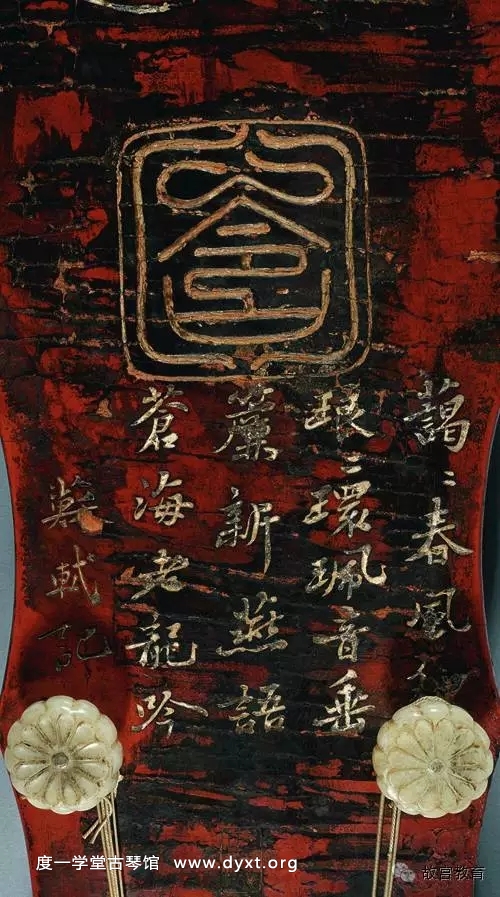 包含
藹〻春風細
琅〻環珮音垂
簾新燕語
蒼海老龍吟
蘇軾記
度一学堂古琴馆 www.dyxt.org
故宫教育